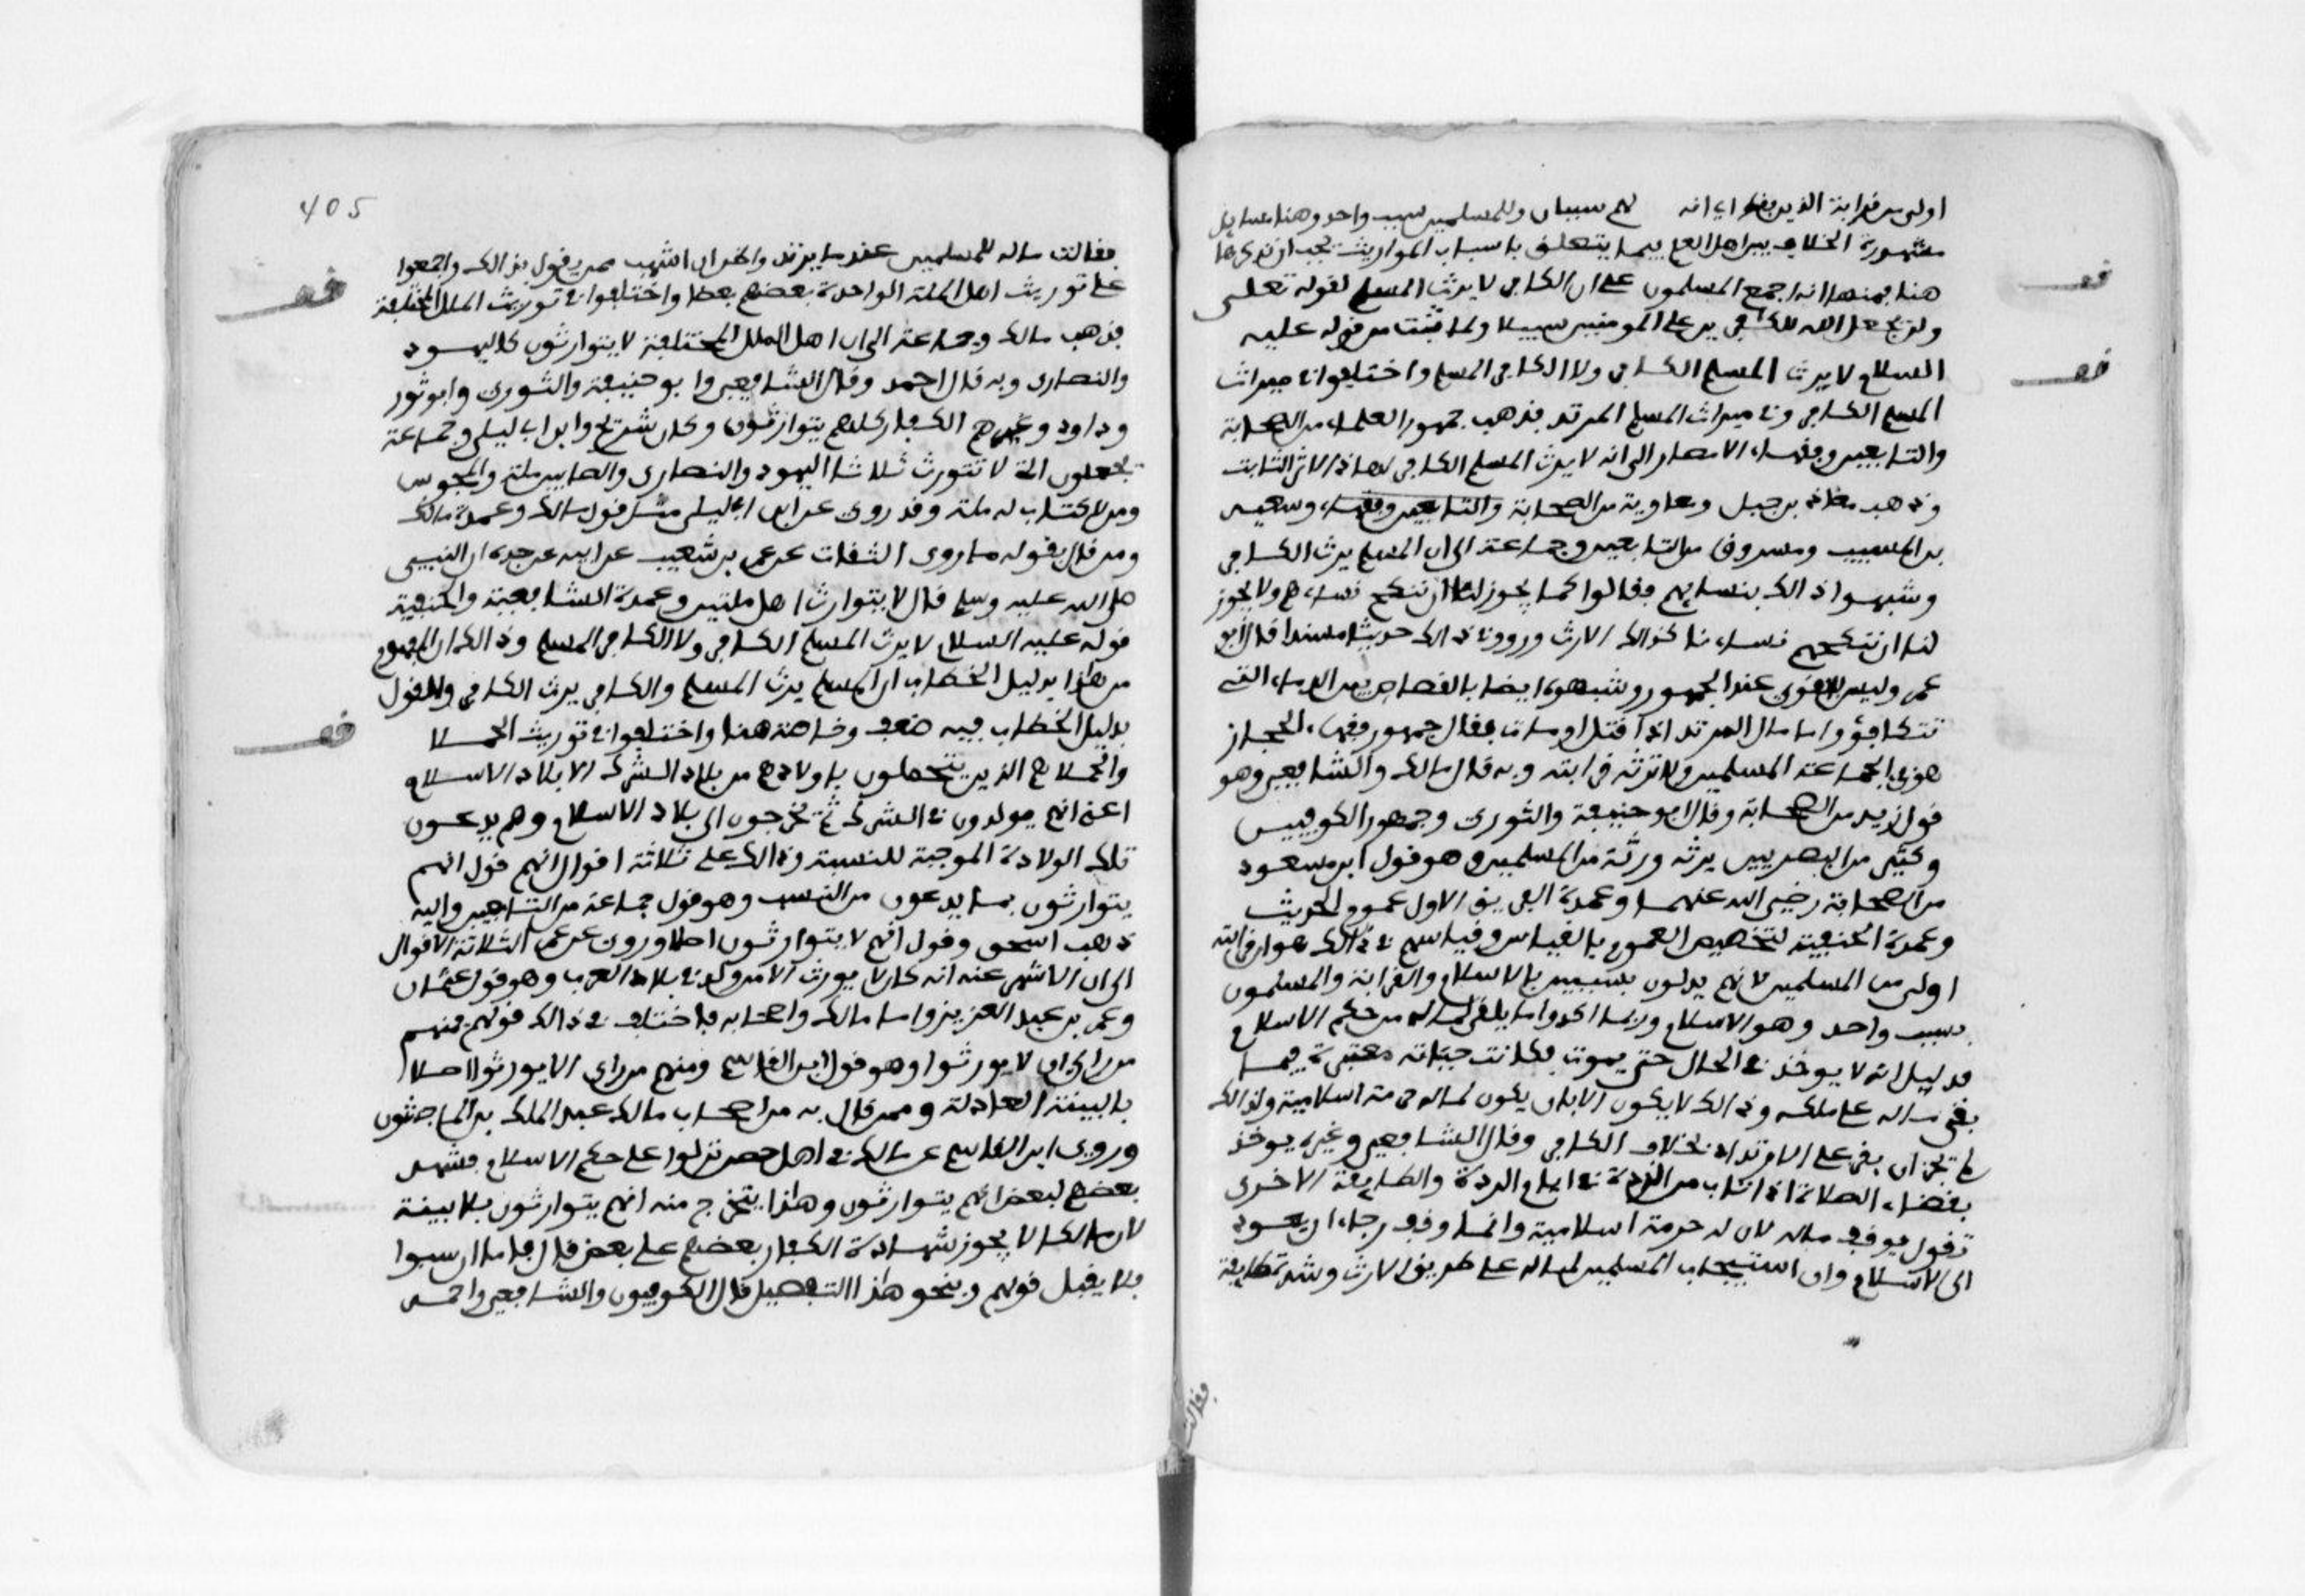 اولى من قرابة الذين بقوا اي انه لهم سببان وللمسلمين سبب واحد وهنا مسايل
مشهورة الخلاف بين اهل العلم فيما يتعلق باسباب المواريث يجب ان نذكرها
هنا فمنها انه اجمع المسلمون على ان الكافر لا يرث المسلم لقوله تعلى
ولن يجعل الله للكافرين على المومنين سبيلا ولما ثبت من قوله عليه
السلام لا يرث المسلم الكافر ولا الكافر المسلم واختلفوا في ميراث
المسلم الكافر وفي ميراث المسلم المرتد فذهب جمهور العلماء من الصحابة
والتابعين وفقهاء الامصار الى انه لا يرث المسلم الكافر لهاذا الاثر الثابت
وذهب معاذ بن جبل ومعاوية من الصحابة والتابعين وفقهاء وسعيد
بن المسيب ومسروق من التابعين وجماعة الى ان المسلم يرث الكافر
وشبهوا ذالك بنسايهم فقالوا كما يجوز لنا ان ننكح نساءهم ولا يجوز
لنا ان ننكحهم نساءنا كذالك الارث ورووا في ذالك حديثا مسندا قال ابو
عمر وليس بالقوي عند الجمهور وشبهوه ايضا بالقصاص بين الدماء التي
تتكافؤ واما مال المرتد اذا قتل او مات فقال جمهور فقهاء الحجاز
هو لجماعة المسلمين ولا ترثه قرابته وبه قال مالك والشافعي وهو
قول زيد من الصحابة وقال ابو حنيفة والثوري وجمهور الكوفيين
وكثير من البصريين يرثه ورثته من المسلمين وهو قول ابن مسعود
من الصحابة رضي الله عنهما وعمدة الفريق الاول عموم الحديث
وعمدة الحنفية تخصيص العموم بالقياس وقياسهم في ذالك هو ان قرابته
اولى من المسلمين لانهم يدلون بسببين بالاسلام والقرابة والمسلمون
بسبب واحد وهو الاسلام وربما اكدوا ما يبقى لماله من حكم الاسلام
بدليل انه لا يوخذ في الحال حتى يموت فكانت حياته معتبرة فيما
بقي ماله على ملكه وذالك لا يكون الا بان يكون لماله حرمة اسلامية ولذالك
لم يجز ان يقر على الارتداد بخلاف الكافر وقال الشافعي وغيره يوخذ
بقضاء الصلاة اذا تاب من الردة في ايام الردة والطايفة الاخرى
تقول يوقف ماله لان له حرمة اسلامية وانما وقف رجاء ان يعود
الى الاسلام وان استيجاب المسلمين لماله على طريق الارث وشذت طايفة
فقالت
405
فقالت ماله للمسلمين عندما يرتد واظن ان اشهب ممن يقول بذالك واجمعوا
على توريث اهل الملة الواحدة بعضهم بعضا واختلفوا في توريث الملل المختلفة
فذهب مالك وجماعة الى ان اهل الملل المختلفة لا يتوارثون كاليهود
والنصارى وبه قال احمد وقال الشافعي وابو حنيفة والثوري وابو ثور
وداود وغيرهم الكفار كلهم يتوارثون وكان شريح وابن ابي ليلى وجماعة
يجعلون الملل التي لا تتوارث ثلاثا اليهود والنصارى والصابين ملة والمجوس
ومن لا كتاب له ملة وقد روي عن ابن ابي ليلى مثل قول مالك وعمدة مالك
ومن قال بقوله ما روى الثقات عن عمرو بن شعيب عن ابيه عن جده ان النبي
صلى الله عليه وسلم قال لا يتوارث اهل ملتين وعمدة الشافعية والحنفية
قوله عليه السلام لا يرث المسلم الكافر ولا الكافر المسلم وذالك ان المفهوم
من هاذا بدليل الخطاب ان المسلم يرث المسلم والكافر يرث الكافر والقول
بدليل الخطاب فيه ضعف وخاصة هنا واختلفوا في توريث الحملا
والحملا هم الذين يتحملون باولادهم من بلاد الشرك الى بلاد الاسلام
اعني انهم يولدون في الشرك ثم يخرجون الى بلاد الاسلام وهم يدعون
تلك الولادة الموجبة للنسبة وذالك على ثلاثة اقوال انهم قول انهم
يتوارثون بما يدعون من النسب وهو قول جماعة من التابعين واليه
ذهب اسحق وقول انهم لا يتوارثون اصلا وروي عن عمر الثلاثة الاقوال
الى ان الاشهر عنه انه كان لا يورث الا من ولد في بلاد العرب وهو قول عثمان
وعمر بن عبد العزيز واما مالك واصحابه فاختلف في ذالك قولهم فمنهم
من راى ان لا يورثوا وهو قول ابن القاسم ومنهم من راى الا يورثوا اصلا
بالبينة العادلة وممن قال به من اصحاب مالك عبد الملك بن الماجشون
وروى ابن القاسم عن مالك في اهل حصن نزلوا على حكم الاسلام فشهد
بعضهم لبعض انهم يتوارثون وهاذا يتخرج منه انهم يتوارثون بلا بينة
لان مالكا لا يجوز شهادة الكفار بعضهم على بعض قال فاما ان سبوا
فلا يقبل قولهم وبنحو هاذا التفصيل قال الكوفيون والشافعي واحمد